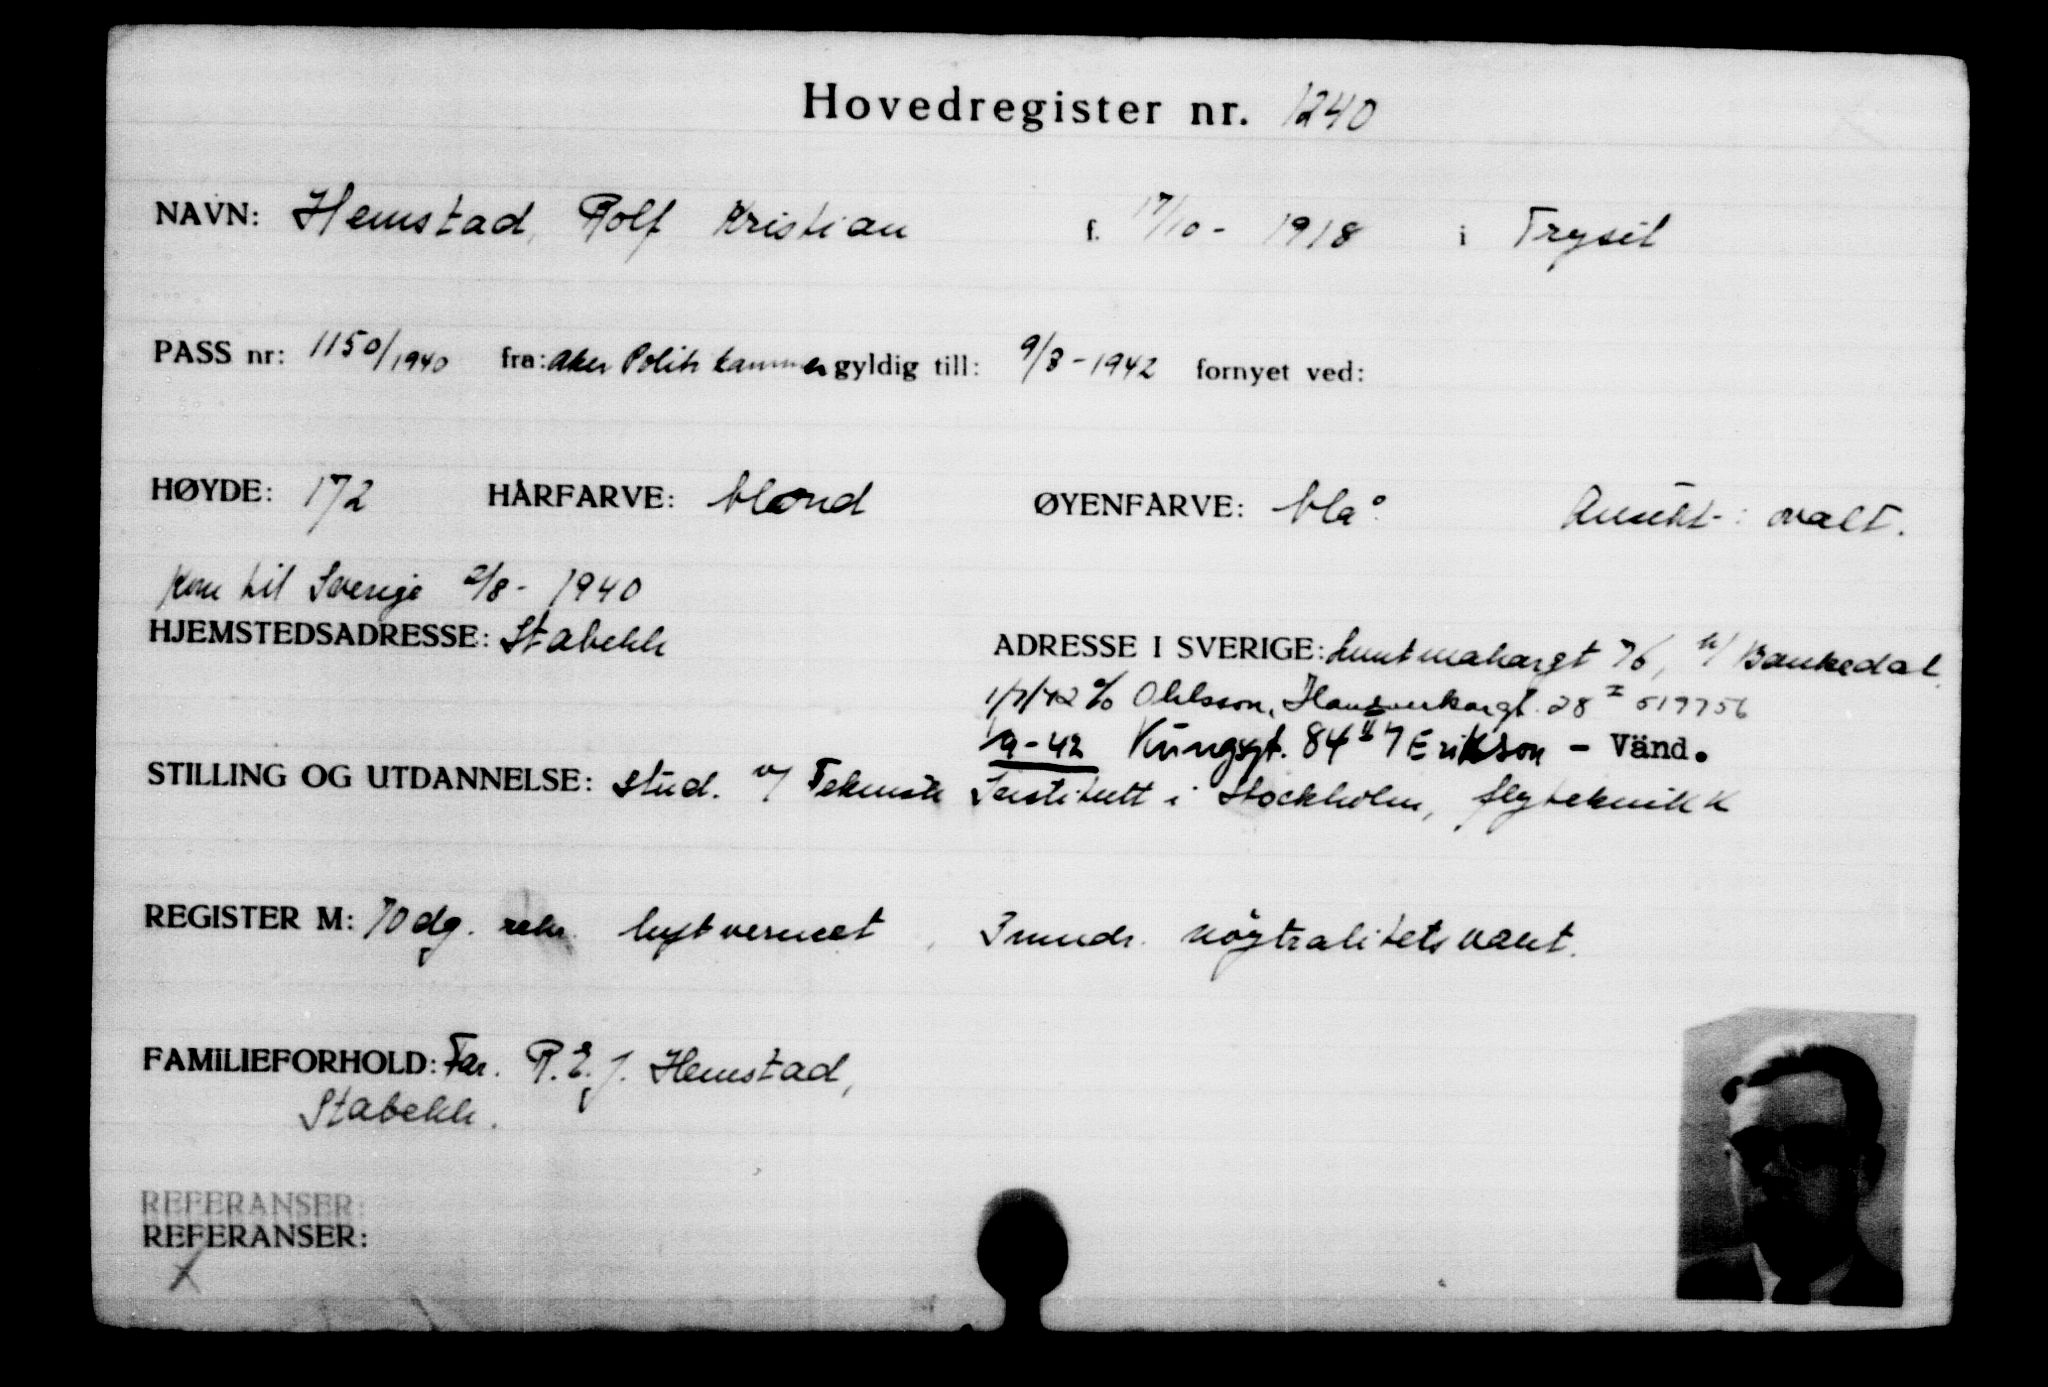 Hovedregister nr. 1240
NAVN: Hemstad, Rolf Kristian f. 17/10 - 1918 i Trysil
PASS nr: 1150/1940 fra: Aker Politikammer gyldig till: 9/8 - 1942 fornyet ved:
HØYDE: 172 HÅRFARVE: blond ØYENFARVE: blå. Ansikt: ovalt.
Kom til Sverige 2/8 - 1940
HJEMSTEDSADRESSE: Stabekk ADRESSE I SVERIGE: Luntmakargt 76, v/ Bankedal
1/7/42 c/o Ohlsson, Hantverkargt. 28 I 519756
1/9-42 Kungsgt. 84 II Erikson - Vänd.
STILLING OG UTDANNELSE: stud. v/ Teknisk Institutt i Stockholm, flyteknikk
REGISTER M: 70 dg. rekr. luftvernet, 3 mndr. nøytralitetsvakt.
FAMILIEFORHOLD: Far. R. E. J. Hemstad,
Stabekk.
REFERANSER:
REFERANSER:
X